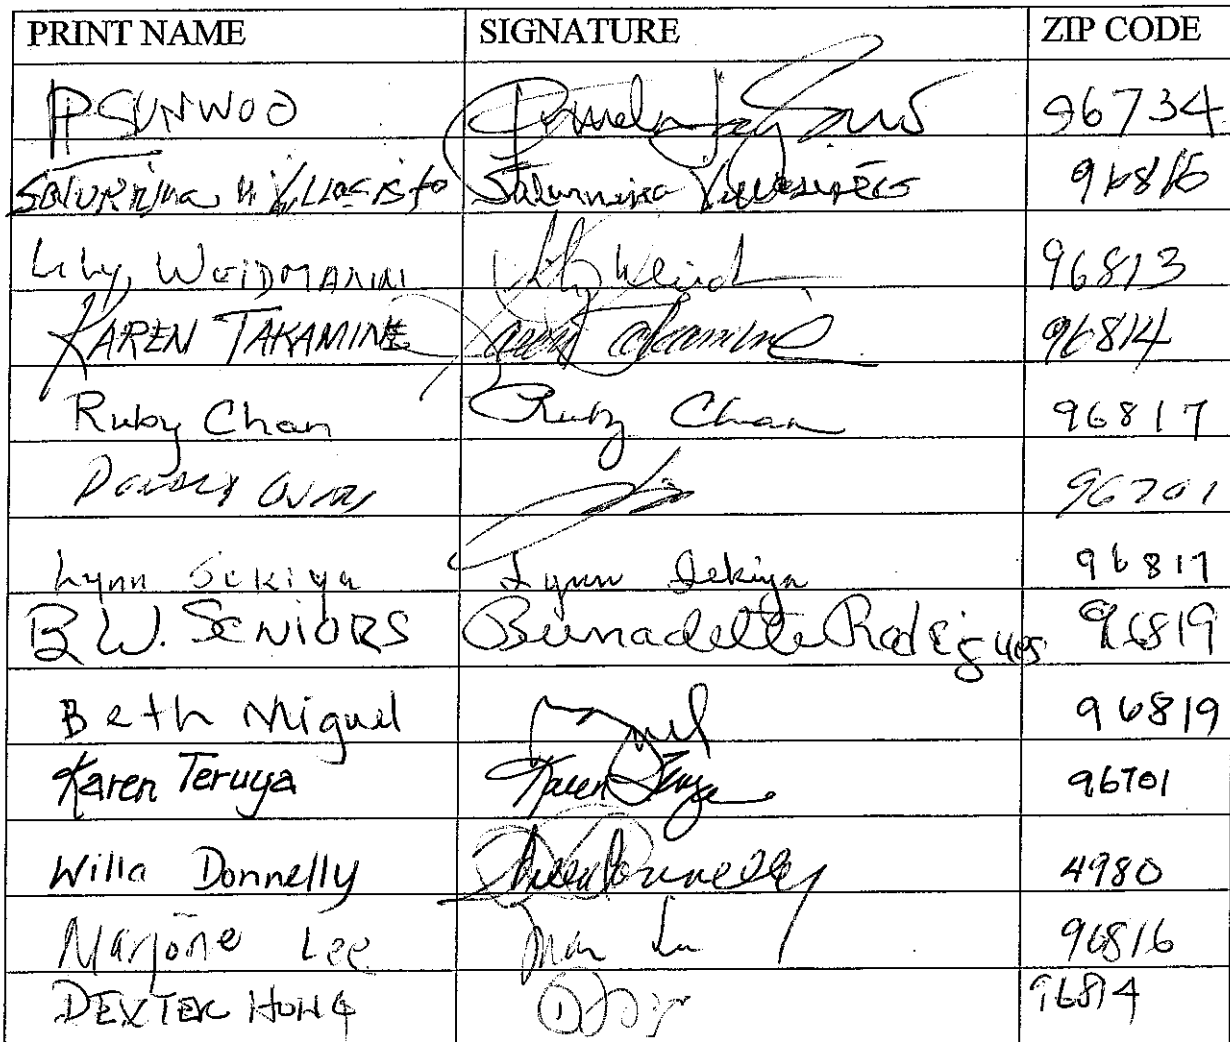 PRINT NAME SIGNATURE ZIP CODE
P SUNWOO Pamela 96734
Saturnina Saturnina 96816
Lily Weidmann Lily Weid 96813
KAREN TAKAMINE Karen Takamine 96814
Ruby Chan Ruby Chan 96817
96701
Lynn Sekiya Lynn Sekiya 96817
B.W. SENIORS Bernadette Rodrigues 96819
Beth Miguel 96819
Karen Teruya Karen Teruya 96701
Willa Donnelly Donnelly 4980
Marjorie Lee Mar Lee 96816
DEXTER HONG 96814